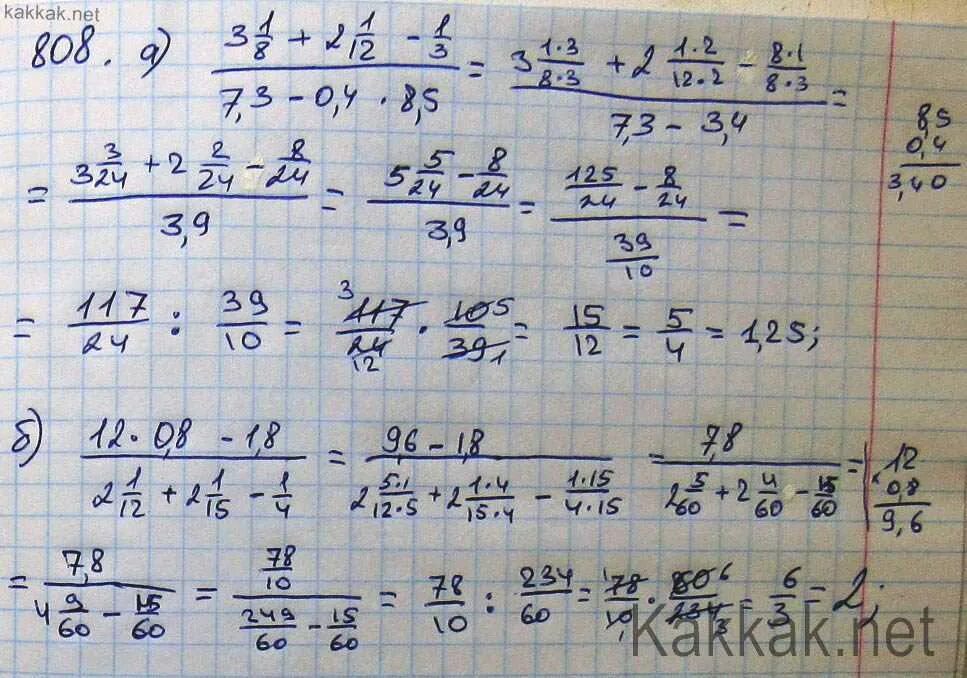 kakkak.net
808. а) (3 1/8 + 2 1/12 - 1/3)/(7,3 - 0,4 · 8,5) = (3 1·3/8·3 + 2 1·2/12·2 - 8·1/8·3)/(7,3 - 3,4) =
8,5
0,4
3,40
= (3 3/24 + 2 2/24 - 8/24)/3,9 = (5 5/24 - 8/24)/3,9 = (125/24 - 8/24)/(39/10) =
= 117/24 : 39/10 = 3 117/24 12 · 10 5/39 1 = 15/12 = 5/4 = 1,25;
б) (12 · 0,8 - 1,8)/(2 1/12 + 2 1/15 - 1/4) = (9,6 - 1,8)/(2 5·1/12·5 + 2 1·4/15·4 - 1·15/4·15) = 7,8/(2 5/60 + 2 4/60 - 15/60) =
12
0,8
9,6
= 7,8/(4 9/60 - 15/60) = (78/10)/(249/60 - 15/60) = 78/10 : 234/60 = 1 78/10 1 · 60 6/234 3 = 6/3 = 2;
Kakkak.net